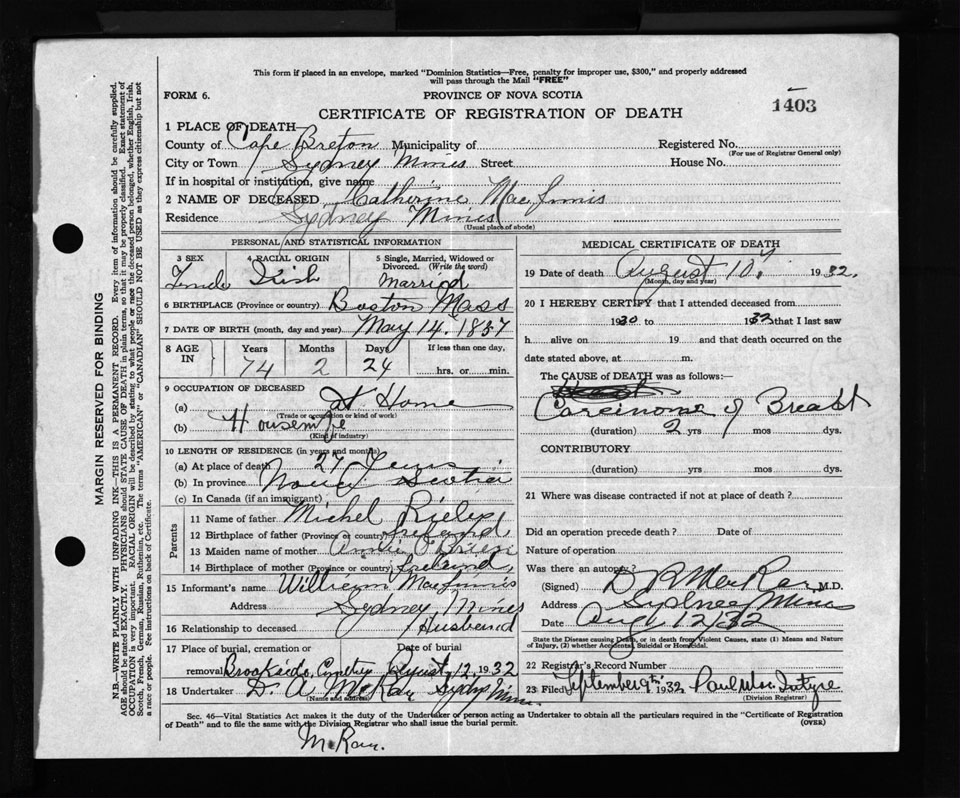 This form if placed in an envelope, marked "Dominion Statistics—Free, penalty for improper use, $300," and properly addressed
will pass through the Mail "FREE"
FORM 6. PROVINCE OF NOVA SCOTIA
CERTIFICATE OF REGISTRATION OF DEATH 1403
1 PLACE OF DEATH—
County of Cape Breton Municipality of Registered No.
(For use of Registrar General only)
City or Town Sydney Mines Street House No.
If in hospital or institution, give name
2 NAME OF DECEASED Catherine MacInnis
Residence Sydney Mines
(Usual place of abode)
PERSONAL AND STATISTICAL INFORMATION
3 SEX 4 RACIAL ORIGIN 5 Single, Married, Widowed or Divorced. (Write the word)
Female Irish Married
6 BIRTHPLACE (Province or country) Boston Mass
7 DATE OF BIRTH (month, day and year) May 14, 1857
8 AGE IN Years Months Days If less than one day,
74 2 24 hrs. or min.
9 OCCUPATION OF DECEASED
(a) At Home
(Trade or occupation or kind of work)
(b) Housewife
(Kind of industry)
10 LENGTH OF RESIDENCE (in years and months)
(a) At place of death 27 Years
(b) In province Nova Scotia
(c) In Canada (if an immigrant)
Parents
11 Name of father Michel
12 Birthplace of father (Province or country) Ireland
13 Maiden name of mother O'Brien
14 Birthplace of mother (Province or country) Ireland
15 Informant's name William MacInnis
Address Sydney Mines
16 Relationship to deceased Husband
17 Place of burial, cremation or Date of burial
removal Brookside Cmetry August 12, 1932
18 Undertaker D. A. McRae Sydny Mines
(Name and address)
MEDICAL CERTIFICATE OF DEATH
19 Date of death August 10 1932.
(Month, day and year)
20 I HEREBY CERTIFY that I attended deceased from
1930 to 1932 that I last saw
h alive on 19 and that death occurred on the
date stated above, at m.
The CAUSE of DEATH was as follows:—
Carcinoma of Breast
(duration) 2 yrs mos dys.
CONTRIBUTORY
(duration) yrs mos dys.
21 Where was disease contracted if not at place of death?
Did an operation precede death? Date of
Nature of operation
Was there an autopsy?
(Signed) D R MacRae M.D.
Address Sydney Mines
Date Aug 12/32
State the Disease causing Death, or in death from Violent Causes, state (1) Means and Nature
of Injury, (2) whether Accidental, Suicidal or Homicidal.
22 Registrar's Record Number
23 Filed September 9th 1932 Paul MacIntyre
(Division Registrar)
Sec. 46—Vital Statistics Act makes it the duty of the Undertaker or person acting as Undertaker to obtain all the particulars required in the "Certificate of Registration
of Death" and to file the same with the Division Registrar who shall issue the burial permit. (OVER)
MARGIN RESERVED FOR BINDING
N.B.—WRITE PLAINLY WITH UNFADING INK—THIS IS A PERMANENT RECORD. Every item of information should be carefully supplied.
AGE should be stated EXACTLY. PHYSICIANS should STATE CAUSE OF DEATH in plain terms, so that it may be properly classified. Exact statement of
OCCUPATION is very important. RACIAL ORIGIN will be described by stating to what people or race the deceased person belonged, whether English, Irish,
Scotch, French, German, Russian, Ruthenian, etc. The terms "AMERICAN" or "CANADIAN" SHOULD NOT BE USED as they express citizenship but not
a race or people. See instructions on back of Certificate.